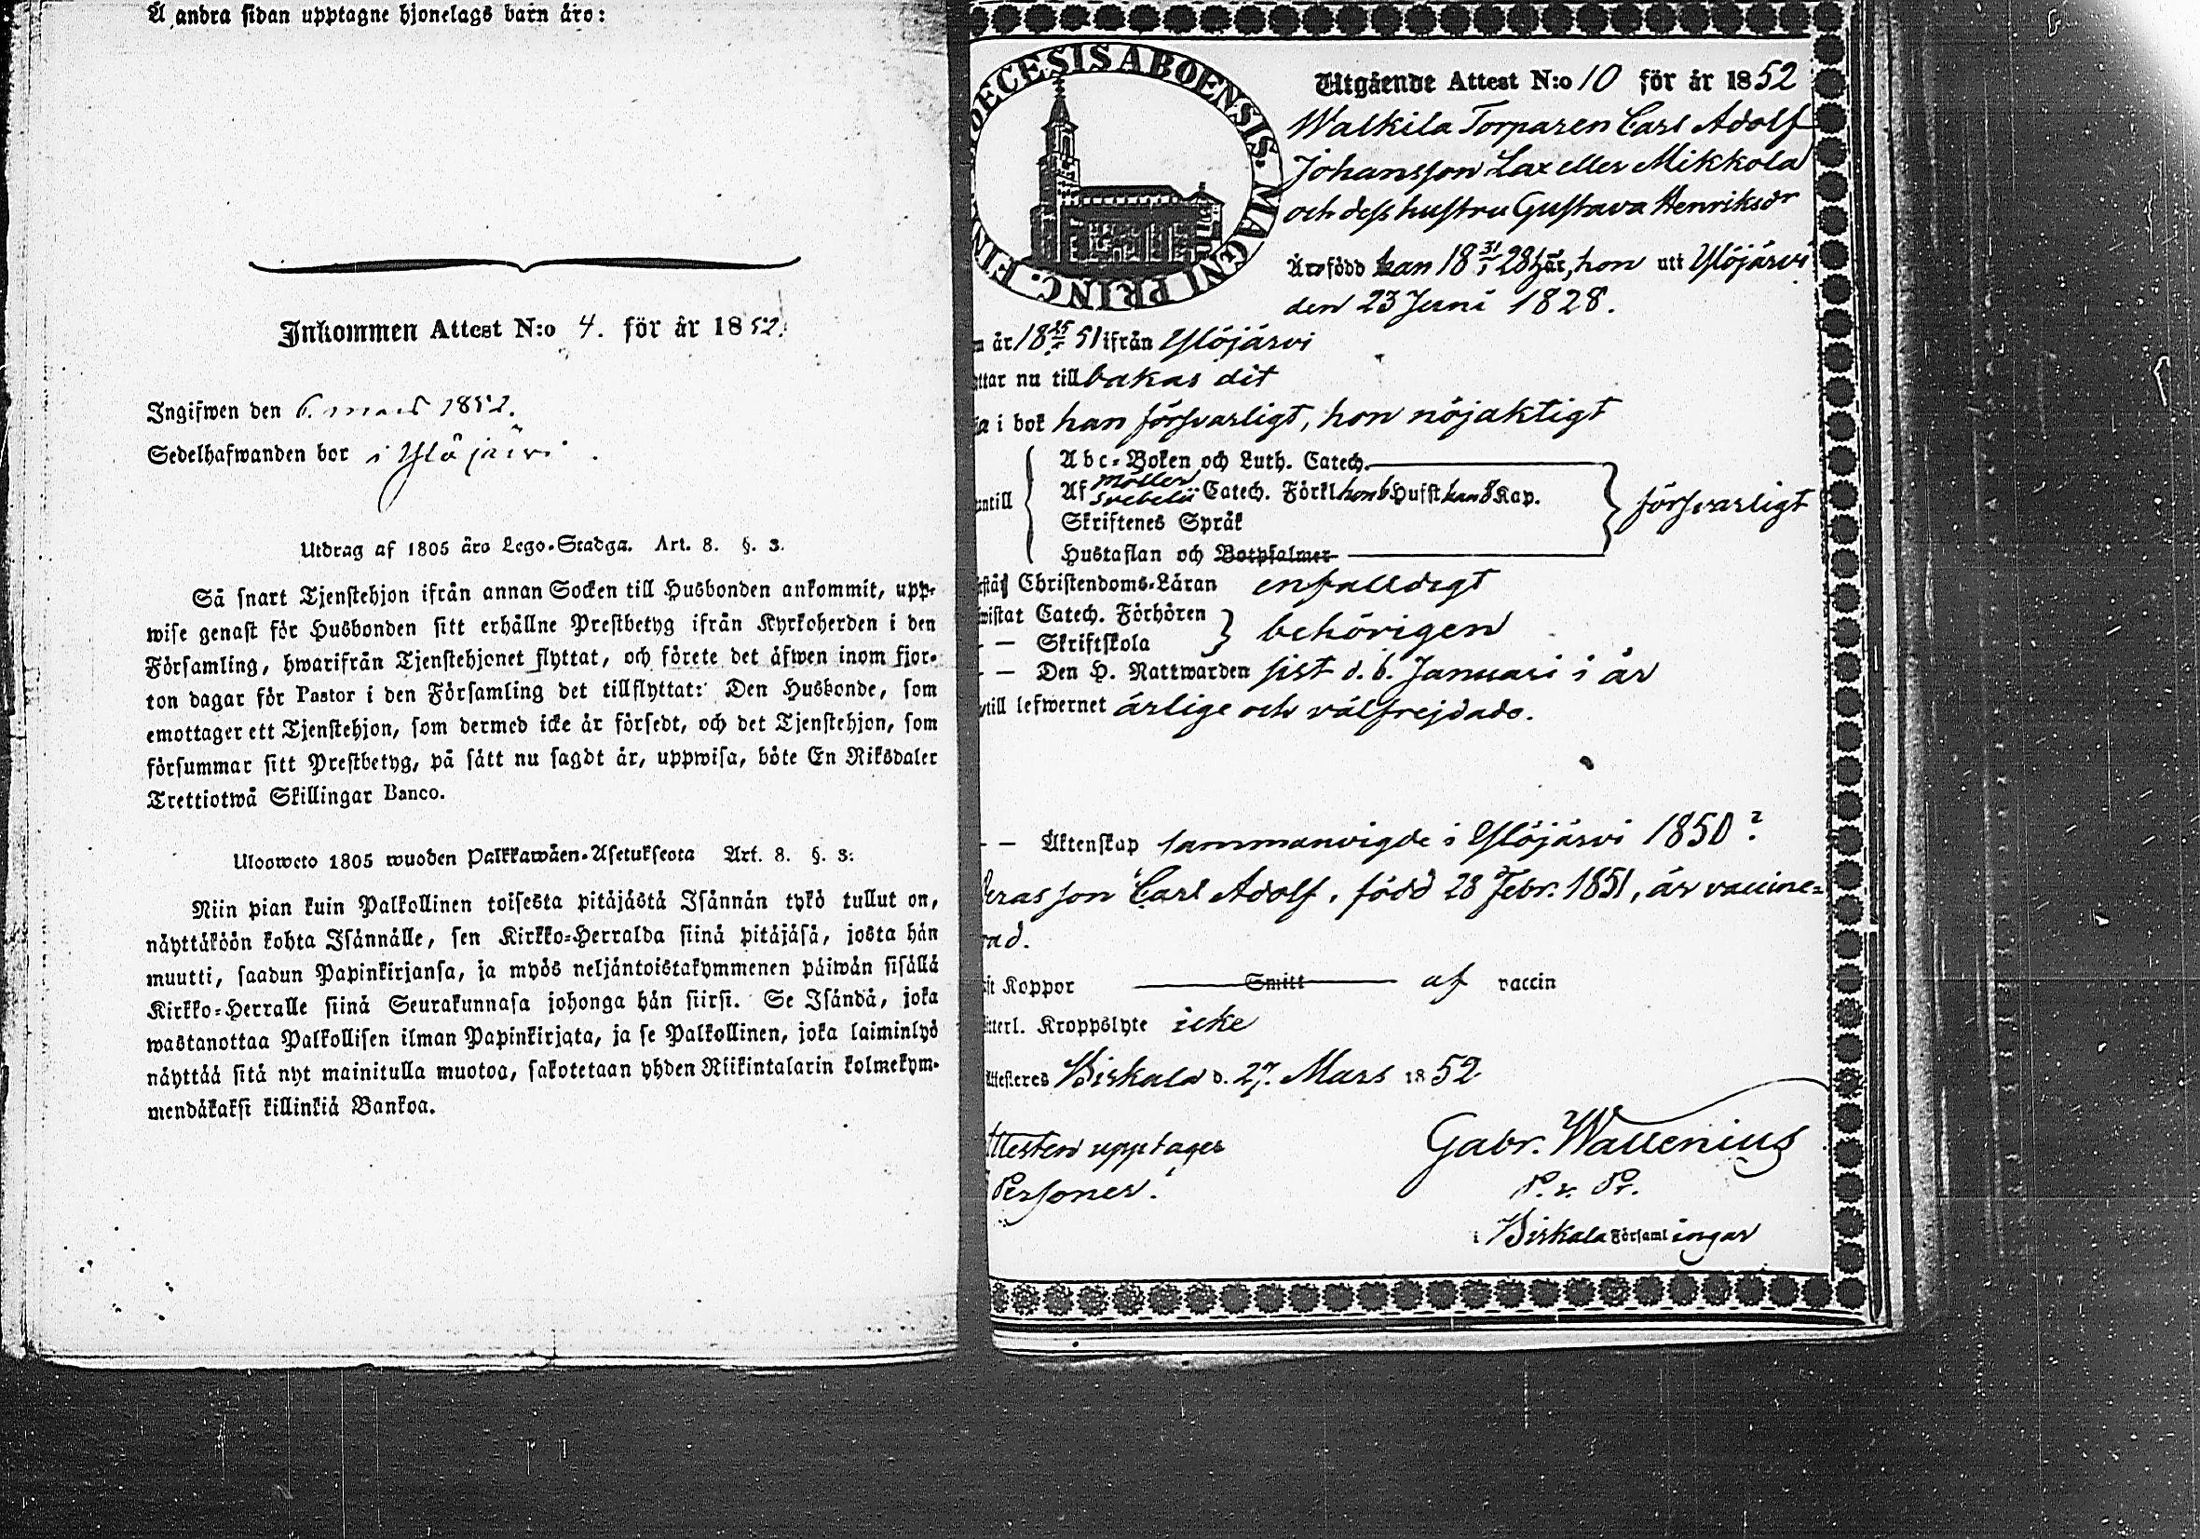 Å andra sidan upptagne hjonelags barn äro:
Inkommen Attest N:o 4. för år 1852.
Ingifwen den 6. mars 1852.
Sedelhafwanden bor i Ylöjärvi.
Utdrag af 1805 års Lego-Stadga. Art. 8. §. 3.
Så snart Tjenstehjon ifrån annan Socken till Husbonden ankommit, upp-
wise genast för Husbonden sitt erhållne Prestbetyg ifrån Kyrkoherden i den
Församling, hwarifrån Tjenstehjonet flyttat, och förete det äfwen inom fjor-
ton dagar för Pastor i den Församling det tillflyttat: Den Husbonde, som
emottager ett Tjenstehjon, som dermed icke är försedt, och det Tjenstehjon, som
försummar sitt Prestbetyg, på sätt nu sagdt är, uppwisa, böte En Riksdaler
Trettiotwå Skillingar Banco.
Ulosweto 1805 wuoden Palkkawäen-Asetuksesta Art. 8. §. 3.
Niin pian kuin Palkollinen toisesta pitäjästä Isännän tykö tullut on,
näyttäköön kohta Isännälle, sen Kirkko-Herralda siinä pitäjäsä, josta hän
muutti, saadun Papinkirjansa, ja myös neljäntoistakymmenen päiwän sisällä
Kirkko-Herralle siinä Seurakunnasa johonga hän siirsi. Se Isändä, joka
wastanottaa Palkollisen ilman Papinkirjata, ja se Palkollinen, joka laiminlyö
näyttää sitä nyt mainitulla muotoa, sakotetaan yhden Riikintalarin kolmekym-
mendäkaksi killinkiä Bankoa.
DIOECESIS ABOENSIS. MAGNI PRINC. FIN
Utgående Attest N:o 10 för år 1852
Walkila Torparen Carl Adolf
Johansson Lax eller Mikkola
och dess hustru Gustava Henriksdr
Äro född han 18 31/1 28 här, hon uti Ylöjärvi
den 23 Juni 1828.
år 18 51 ifrån Ylöjärvi
ttar nu tillbakas dit
a i bok han försvarligt, hon nöjaktigt
Abc-Boken och Luth. Catech.
Af Möller Svebelii Catech. Förkl hon 6 Hufst han 8 Kap.
ntill
försvarligt
Skriftenes Språk
Hustaflan och Botpsalmer
står Christendoms-Läran enfalldigt
wistat Catech. Förhören
— Skriftskola
behörigen
— — Den H. Nattwarden sist d. 6. Januari i år
till lefwernet ärlige och välfrejdade.
— — Äktenskap sammanvigde i Ylöjärvi 1850?
eras son Carl Adolf, född 28 Febr. 1851, är vaccine=
rad.
Koppor Snitt af vaccin
tterl. Kroppslyte icke
ttesteres Birkala d. 27. Mars 1852
ttesten upptager
Personer.
Gabr. Wallenius
P. v. Pr.
i Birkala Församlingar